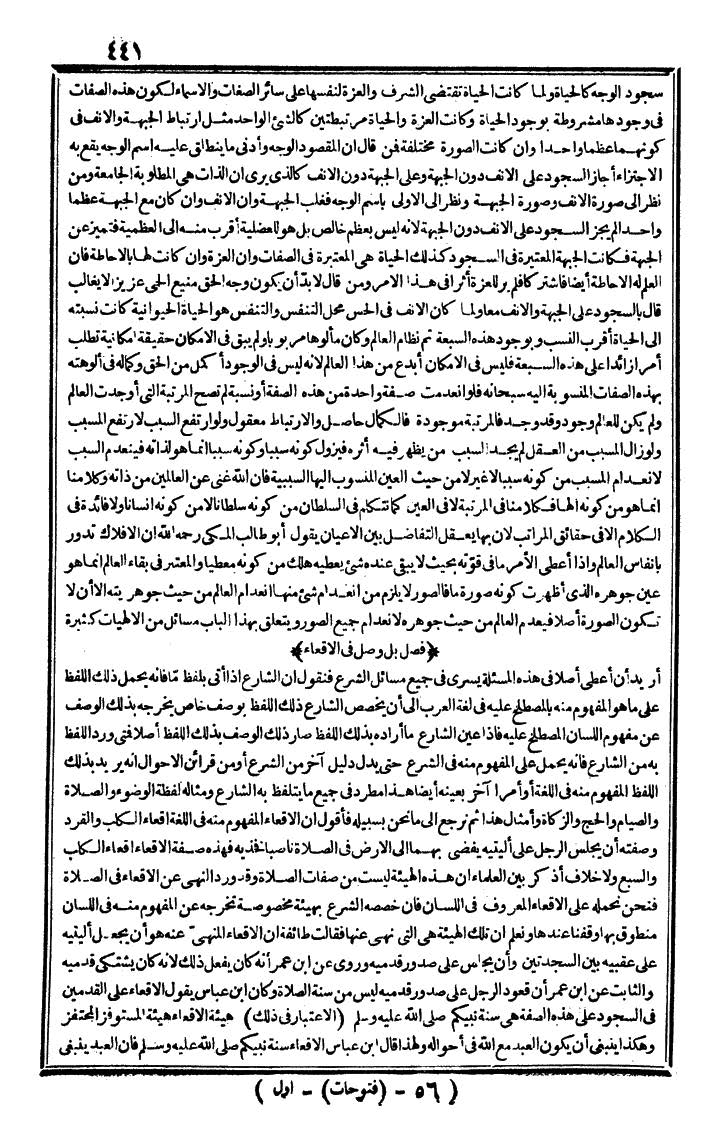 ٤٤١
سجود الوجه كالحياة ولما كانت الحياة تقتضى الشرف والعزة لنفسها على سائر الصفات والاسماء لكون هذه الصفات
فى وجودها مشروطة بوجود الحياة وكانت العزة والحياة مرتبطتين كالشئ الواحد مثل ارتباط الجبهة والانف فى
كونهما عظما واحدا وان كانت الصورة مختلفة فمن قال ان المقصود الوجه وأدنى ما ينطلق عليه اسم الوجه يقع به
الاجتزاء أجاز السجود على الانف دون الجبهة وعلى الجبهة دون الانف كالذى يرى ان الذات هى المطلوبة الجامعة ومن
نظر الى صورة الانف وصورة الجبهة ونظر الى الاولى باسم الوجه فغلب الجبهة وان الانف وان كان مع الجبهة عظما
واحدا لم يجز السجود على الانف دون الجبهة لانه ليس بعظم خالص بل هو للعضلية أقرب منه الى العظمية فتميز عن
الجبهة فكانت الجبهة المعتبرة فى السجود كذلك الحياة هى المعتبرة فى الصفات وان العزة وان كانت لها بالاحاطة فان
العلم له الاحاطة أيضا فاشتركا فلم ير للعزة أثرا فى هذا الامر ومن قال لا بدّ أن يكون وجه الحق منيع الحمى عزيز الا يغالب
قال بالسجود على الجبهة والانف معا ولما كان الانف فى الحس محل التنفس والتنفس هو الحياة الحيوانية كانت نسبته
الى الحياة أقرب النسب وبوجود هذه السبعة تم نظام العالم وكان مألوها مربوبا ولم يبق فى الامكان حقيقة امكانية تطلب
أمرا زائدا على هذه السبعة فليس فى الامكان أبدع من هذا العالم لانه ليس فى الوجود أكمل من الحق وكماله فى ألوهته
بهذه الصفات المنسوبة اليه سبحانه فلو انعدمت صفة واحدة من هذه الصفة أو نسبة لم تصح المرتبة التى أوجدت العالم
ولم يكن للعالم وجود وقد وجد فالمرتبة موجودة فالكمال حاصل والارتباط معقول ولو ارتفع السبب لارتفع المسبب
ولو زال المسبب من العقل لم يجد السبب من يظهر فيه أثره فيزول كونه سببا وكونه سببا انما هو لذاته فينعدم السبب
لانعدام المسبب من كونه سببا لا غير لا من حيث العين المنسوب اليها السببية فان الله غنى عن العالمين من ذاته وكلامنا
انما هو من كونه الها فكلامنا فى المرتبة لا فى العين كما نتكلم فى السلطان من كونه سلطانا لا من كونه انسانا ولا فائدة فى
الكلام الا فى حقائق المراتب لان بها يعقل التفاضل بين الاعيان يقول أبو طالب المكى رحمه الله ان الافلاك تدور
بانفاس العالم واذا أعطى الأمر ما فى قوّته بحيث لا يبقى عنده شئ يعطيه هلك من كونه معطيا والمعتبر فى بقاء العالم انما هو
عين جوهره الذى أظهرت كونه صورة ما فالصور لا يلزم من انعدام شئ منها انعدام العالم من حيث جوهريته الا أن لا
تكون الصورة أصلا فيعدم العالم من حيث جوهره لانعدام جميع الصور ويتعلق بهذا الباب مسائل من الالهيات كثيرة
﴿فصل بل وصل فى الاقعاء﴾
أريد أن أعطى أصلا فى هذه المسئلة يسرى فى جميع مسائل الشرع فنقول ان الشارع اذا أتى بلفظ ما فانه يحمل ذلك اللفظ
على ما هو المفهوم منه بالمصطلح عليه فى لغة العرب الى أن يخصص الشارع ذلك اللفظ بوصف خاص يخرجه بذلك الوصف
عن مفهوم اللسان المصطلح عليه فاذا عين الشارع ما أراده بذلك اللفظ صار ذلك الوصف بذلك اللفظ أصلا فمتى ورد اللفظ
به من الشارع فانه يحمل على المفهوم منه فى الشرع حتى يدل دليل آخر من الشرع أو من قرائن الاحوال انه يريد بذلك
اللفظ المفهوم منه فى اللغة أو أمرا آخر بعينه أيضا هذا مطرد فى جميع ما يتلفظ به الشارع ومثاله لفظة الوضوء والصلاة
والصيام والحج والزكاة وأمثال هذا ثم نرجع الى ما نحن بسبيله فأقول ان الاقعاء المفهوم منه فى اللغة اقعاء الكلب والقرد
وصفته أن يجلس الرجل على أليتيه يفضى بهما الى الارض فى الصلاة ناصبا فخذيه فهذه صفة الاقعاء اقعاء الكلب
والسبع ولا خلاف أذكر بين العلماء ان هذه الهيئة ليست من صفات الصلاة وقد ورد النهى عن الاقعاء فى الصلاة
فنحن نحمله على الاقعاء المعروف فى اللسان فان خصصه الشرع بهيئة مخصوصة تخرجه عن المفهوم منه فى اللسان
منطوق بها وقفنا عندها ونعلم ان تلك الهيئة هى التى نهى عنها فقالت طائفة ان الاقعاء المنهىّ عنه هو أن يجعل أليتيه
على عقبيه بين السجدتين وأن يجلس على صدور قدميه وروى عن ابن عمر أنه كان يفعل ذلك لانه كان يشتكى قدميه
والثابت عن ابن عمر أن قعود الرجل على صدور قدميه ليس من سنة الصلاة وكان ابن عباس يقول الاقعاء على القدمين
فى السجود على هذه الصفة هى سنة نبيكم صلى الله عليه وسلم (الاعتبار فى ذلك) هيئة الاقعاء هيئة المستوفز المحتفز
وهكذا ينبغى أن يكون العبد مع الله فى أحواله ولهذا قال ابن عباس الاقعاء سنة نبيكم صلى الله عليه وسلم فان العبد ينبغى
( ٥٦ - (فتوحات) - اول )